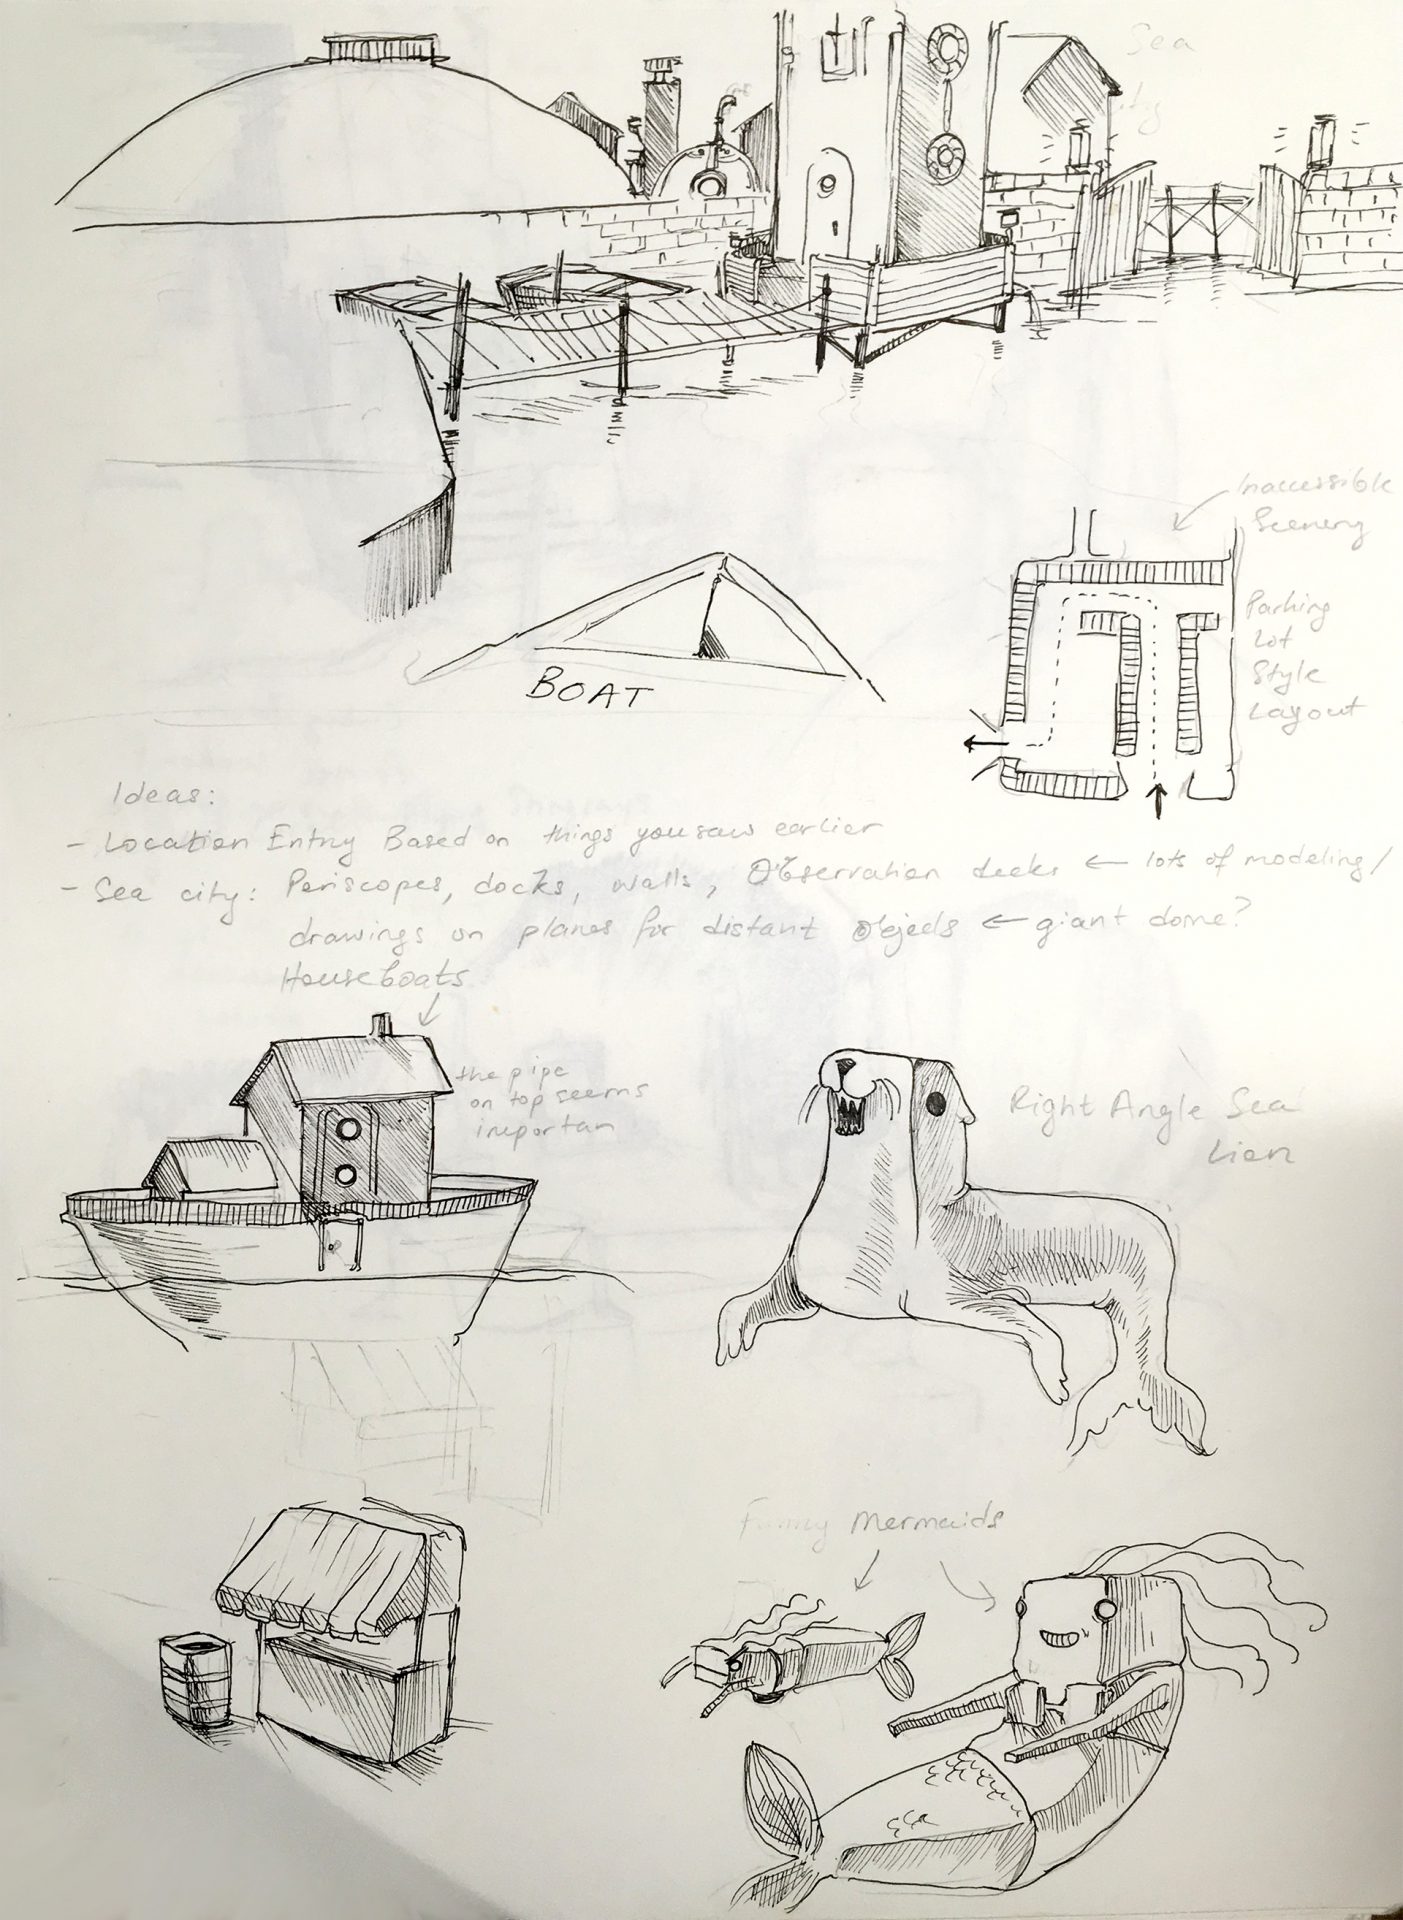 Sea
Inaccessible
Scenery
Parking
Lot
Style
Layout
BOAT
Ideas:
- Location Entry Based on things you saw earlier
- Sea city: Periscopes, docks, walls, Observation decks ← lots of modeling/
drawings on planes for distant objects ← giant dome?
Houseboats
the pipe
on top seems
importan
Right Angle Sea
Lion
Funny Mermaids